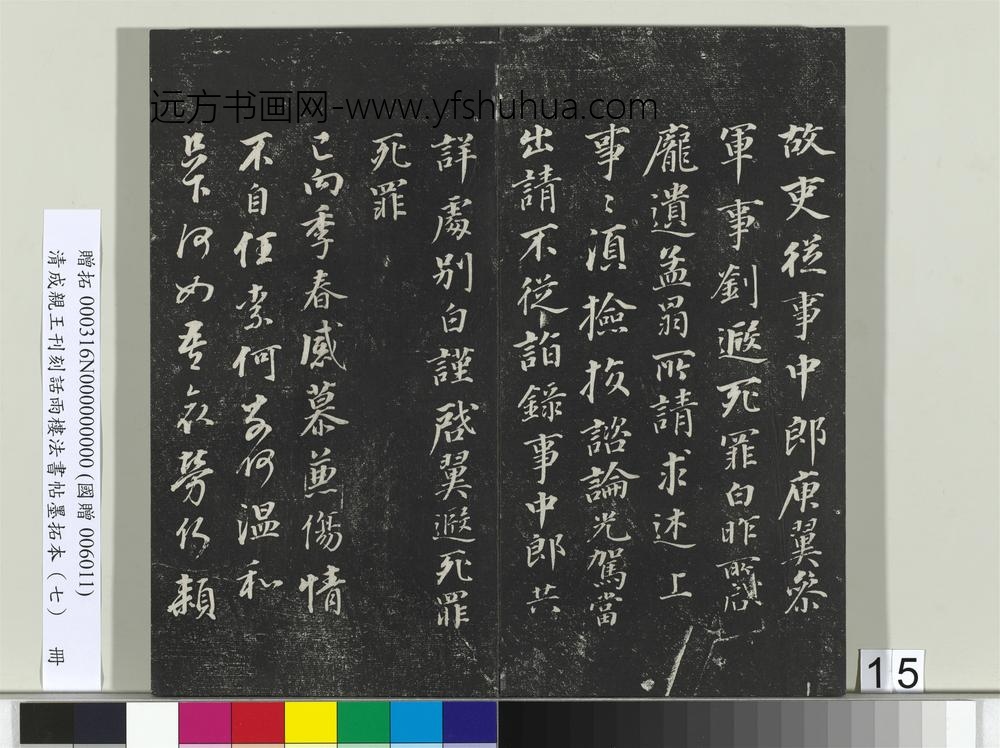 远方书画网-www.yfshuhua.com
故吏從事中郎庾翼參
軍事劉遐死罪白昨所啟
龐遺孟昺所請求述上
事〻須撿校諮論光駕當
出請不從詣錄事中郎共
詳處別白謹啟翼遐死罪
死罪
已向季春感慕兼傷情
不自任柰何柰何溫和
足下何如吾哀勞仍賴
贈拓 000316N000000000 (國贈 006011)
清成親王刊刻話雨樓法書帖墨拓本(七) 冊
15